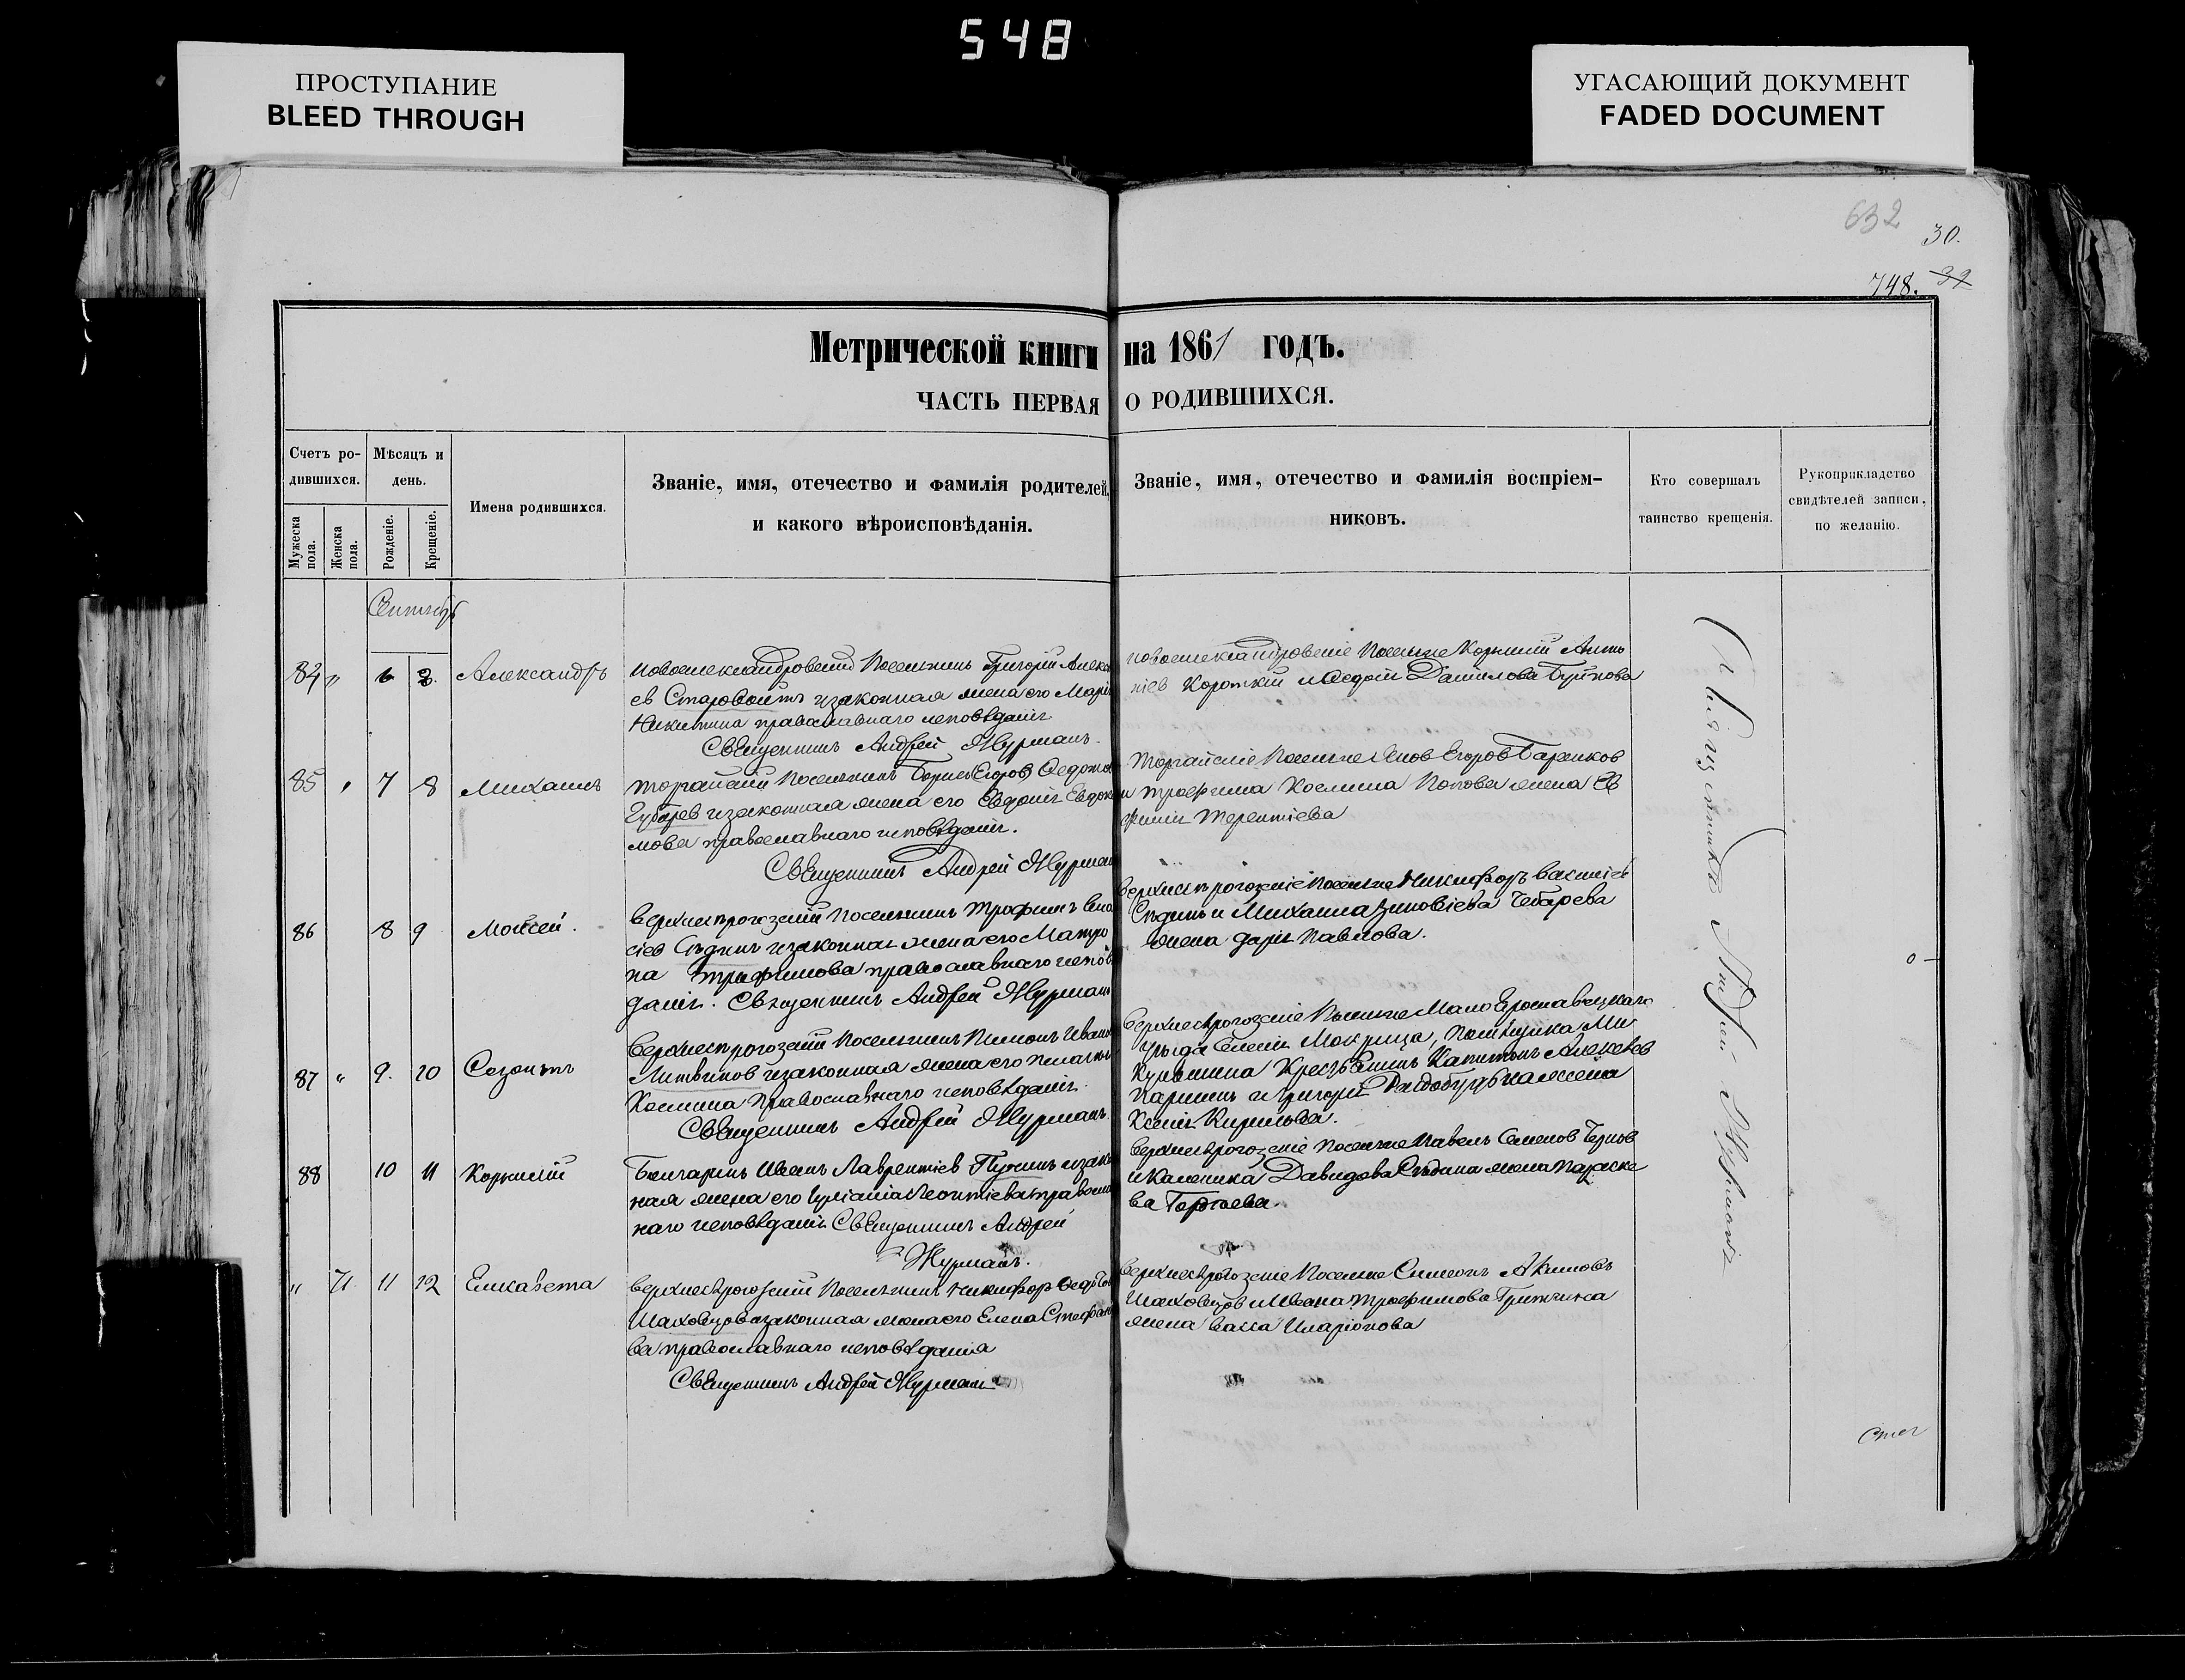 548
ПРОСТУПАНИЕ
BLEED THROUGH
УГАСАЮЩИЙ ДОКУМЕНТ
FADED DOCUMENT
632
30.
748. 32
Метрической книги на 1861 годъ.
ЧАСТЬ ПЕРВАЯ О РОДИВШИХСЯ.
Счетъ ро-
дившихся.
Мужеска
пола.
Женска
пола.
Мѣсяцъ и
день.
Рожденіе.
Крещеніе.
Имена родившихся.
Званіе, имя, отечество и фамилія родителей,
и какого вѣроисповѣданія.
Званіе, имя, отечество и фамилія воспріем-
никовъ.
Кто совершалъ
таинство крещенія.
Рукоприкладство
свидѣтелей записи,
по желанію.
Сентябрь
84 " 6 8. Александръ
Новоалександровскій Поселянинъ Григорій Алексѣ
ев Старовойтъ изаконная жена его Марія
Никитина православнаго исповѣданія
Священникъ Андрей Журманъ.
Новоалександровскіе Поселяне Корнилій Анто
ніев Короткій и Федоти Данилова Буйнова
85 " 7 8 Михаилъ
Торгайскій Поселянинъ Борисъ Егоров Федото
Губарев изаконная жена его Евдокія Евдоки
мова православнаго исповѣданія.
Священникъ Андрей Журман
Торгайскіе Поселяне Яков Егоров Баренков
и Трофима Космина Попова жена Ев
фимія Терентіева
86 8 9 Моисей.
Верхнесѣрогозскій Поселянинъ Трофимъ
сіев Сѣдинъ изаконная жена его Матро
на Трофимова православнаго исповѣ
данія. Священникъ Андрей Журманъ
Верхнесѣрогозскіе Поселяне Никифоръ Васильев
Сѣдинъ и Михаила Зиновіева Чебарева
жена Дарія Павлова.
87 " 9. 10 Созонтъ
Верхнесѣрогозскій Поселянинъ Пименъ Иванов
Литвинов изаконная жена его Пелагія
Космина Православнаго исповѣданія.
Священникъ Андрей Журманъ.
Верхнесѣрогозскіе Поселяне Мало Ярославецкаго
уѣзда Мокрица,
Крестьянинъ Капитонъ Алексѣев
Паршинъ и Григорія жена
Ксенія Кирилова.
88 10 11 Корнилій
Болгаринъ Иванъ Лаврентіев Пужинъ изакон
ная жена его Іуліанія Леонтіева православ
наго исповѣданія Священникъ Андрей
Журманъ.
Верхнесѣрогозскіе Поселяне Павелъ Семенов Чернов
и Каленика Давидова Сѣдина жена Параске
ва Гордѣева.
" 71. 11 12 Елисавета
Верхнесѣрогозскій Поселянинъ Никифор Федотов
Шаховцов изаконная жена его Елена Стефано
ва православнаго исповѣданія
Священникъ Андрей Журманъ
Верхнесѣрогозскіе Поселяне Симеонъ Акимовъ
Шаховцов и Ивана Трофимова Гритчина
жена Васса Иларіонова
Священникъ Андрей Журманъ